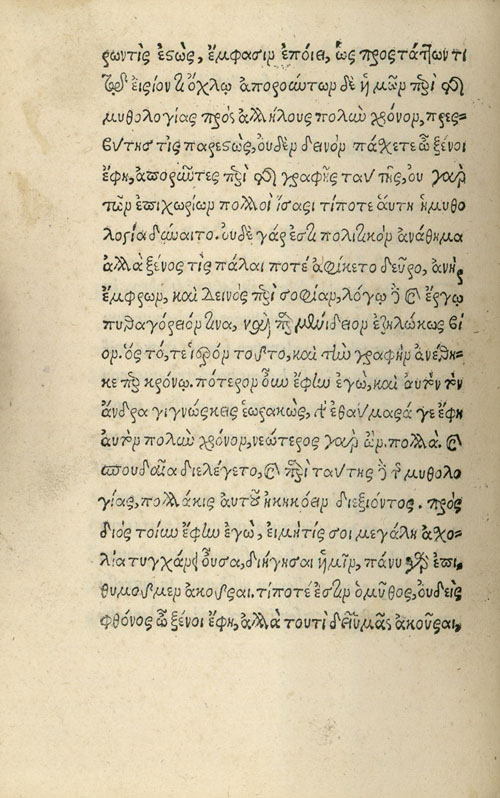 ρωντὶς ἑστὼς, ἔμφασιν ἐποίει, ὡς προστάττων τι
τῷ εἰσιόντι ὄχλῳ ἀπορούντων δὲ ἡμῶν περὶ τῆς
μυθολογίας πρὸς ἀλλήλους πολὺν χρόνον, πρεσ-
βύτης τὶς παρεστὼς, οὐδὲν δεινὸν πάχετε ὦ ξένοι
ἔφη, ἀποροῦντες περὶ τῆς γραφῆς ταύτης, οὐ γὰρ
τῶν ἐπιχωρίων πολλοὶ ἴσασι τίποτε ἁύτη ἡ μυθο
λογία δύναιτο. οὐδὲ γάρ ἐστι πολιτικὸν ἀνάθημα
ἀλλὰ ξένος τὶς πάλαι ποτὲ ἀφίκετο δεῦρο, ἀνὴρ
ἔμφρων, καὶ δεινὸς περὶ σοφίαν, λόγῳ τε καὶ ἔργῳ
πυθαγόρειόν τινα, καὶ παρμενίδειον ἐζηλωκὼς βί
ον. ὃς τό, τε ἱερὸν τοῦτο, καὶ τὴν γραφὴν ἀνέθη-
κε τῷ κρόνῳ. πότερον οὖν ἔφην ἐγὼ, καὶ αὐτὸν τὸν
ἄνδρα γιγνώσκεις ἑωρακὼς, καὶ ἐθαύμασά γε ἔφη
αὐτὸν πολὺν χρόνον, νεώτερος γὰρ ὢν. πολλὰ. καὶ
σπουδαῖα διελέγετο, καὶ περὶ ταύτης δὲ τῆς μυθολο
γίας, πολλάκις αὐτοῦ ἠκηκόειν διεξιόντος. πρὸς
διὸς τοίνυν ἔφην ἐγὼ, εἰ μήτίς σοι μεγάλη ἀχο-
λία τυγχάνει οὖσα, διήγησαι ἡμῖν, πάνυ γὰρ ἐπι-
θυμοῦμεν ἀκοῦσαι. τίποτέ ἐστιν ὁ μῦθος, οὐδεὶς
φθόνος ὦ ξένοι ἔφη, ἀλλὰ τουτὶ δεῖ ὑμᾶς ἀκοῦσαι,